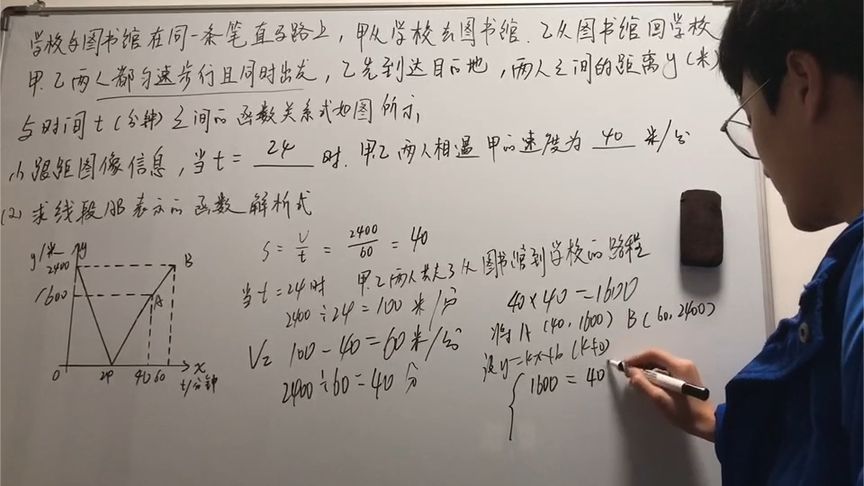 学校与图书馆在同一条笔直马路上，甲从学校去图书馆．乙从图书馆回学校
甲．乙两人都匀速步行且同时出发，乙先到达目的地，两人之间的距离y(米)
与时间t(分钟)之间的函数关系式如图所示，
(1)跟距图像信息，当t = 24 时．甲乙两人相遇 甲的速度为 40 米/分
(2) 求线段AB表示的函数解析式
y/米 y
2400
1600
B
A
0 24 40 60 x
t/分钟
S = V/t = 2400/60 = 40
当t=24时 甲乙两人共走了从图书馆到学校的路程
2400÷24=100米/分
V乙 100-40=60米/分
2400÷60=40分
40×40=1600
将A(40,1600) B(60,2400)
设y=kx+b(k≠0)
{ 1600 = 40